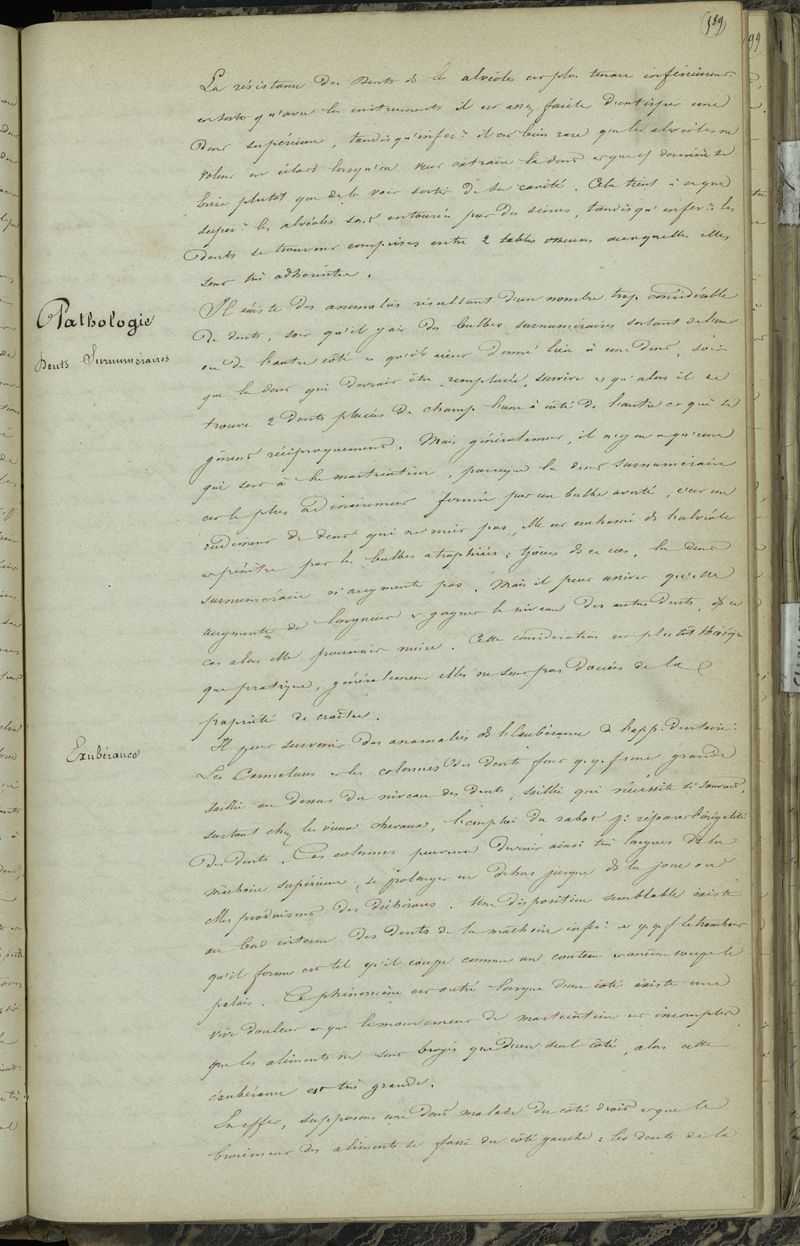 189
La résistance des dents ds les alvéoles est plus tenace inférieuremt
ensorte qu'avec les instruments il est assez facile d'extirper une
dent supérieure, tandis qu'infer.t il est bien rare que les alvéoles ne
volent en éclats lorsqu'on veut extraire la dent et que cette dernière se
brise plutot que de la voir sortir de sa cavité. Cela tient à ce que
super.t les alvéoles sont entourées par des sinus, tandis qu'infer.t les
dents se trouvent comprises entre 2 tables osseuses auxquelles elles
sont très adhérentes.
Pathologie
Dents Surnuméraires
Il éxiste des anomalies résultant d'un nombre trop considérable
de dents, soit qu'il y ait des bulbes surnuméraires sortant de l'un
ou de l'autre côté et qu'ils aient donné lieu à une dent, soit
que la dent qui devrait être remplacée, survive et qu'alors il se
trouve 2 dents placées de champ l'une à côté de l'autre et qui se
gênent réciproquement. Mais généralement, il n'y en a qu'une
qui sert à la mastication, parceque la dent surnuméraire
est le plus ordinairement formée par un bulbe avorté, c'est un
rudiment de dent qui ne nuit pas, elle est enchassée ds l'alvéole
et pénètre par le bulbe atrophié; tjours ds ce cas, la dent
surnuméraire n'augmente pas. Mais il peut arriver qu'elle
augmente de longueur et gagne le niveau des autres dents, ds ce
cas alors elle pourrait nuire. Cette considération est plutôt théorique
que pratique, généralement elles ne sont pas douées de la
propriété de croître.
Exubérance
Il peut survenir des anomalies ds l'exubérance de l'app. dentaire:
Les Cannelures et les colonnes des dents font q.q.f. une grande
saillie au dessus du niveau des dents, saillie qui nécessite si souvent,
surtout chez les vieux chevaux, l'emploi du rabot p.r réparer l'inégalité
des dents. Ces colonnes peuvent devenir ainsi très longues à la
mâchoire supérieure, se prolonger en dehors jusque ds la joue où
elles produisent des déchirures. Une disposition semblable éxiste
au bord interne des dents de la mâchoire infér.e et q.q.f. le tranchant
qu'il forme est tel qu'il coupe comme un couteau et même coupe le
palais. Ce phénomène est outré lorsque d'un côté éxiste une
vive douleur et que le mouvement de mastication est incomplet,
que les aliments ne sont broyés que d'un seul côté, alors cette
éxubérance est très grande.
En effet, supposons une dent malade du côté droit et que le
broiement des aliments se fasse du côté gauche: les dents de la